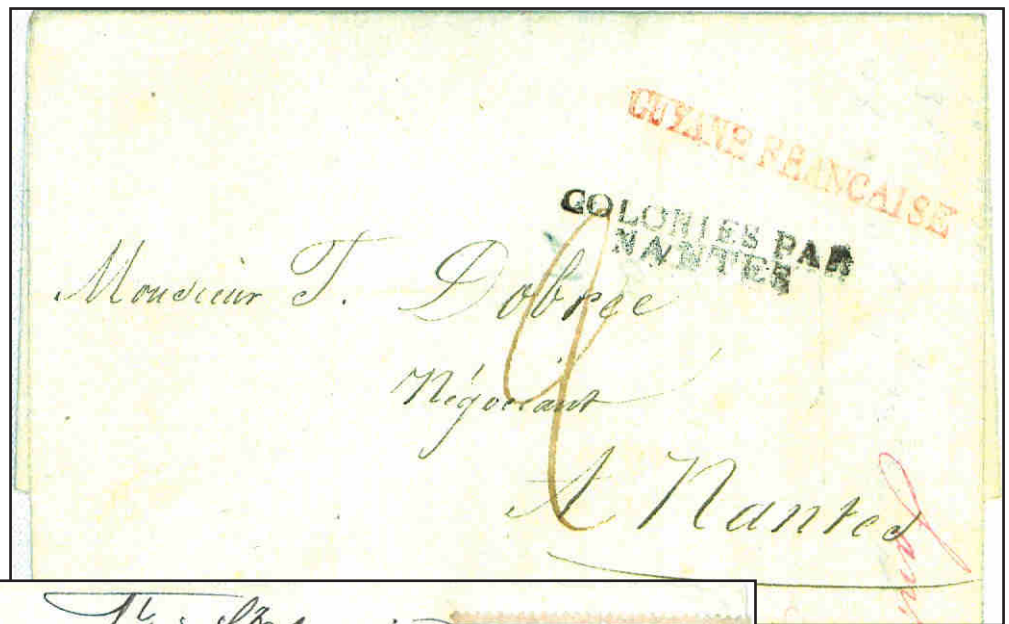 GUYANE FRANCAISE
COLONIES PAR
NANTES
Monsieur T. Dobrée
Négociant
A Nantes